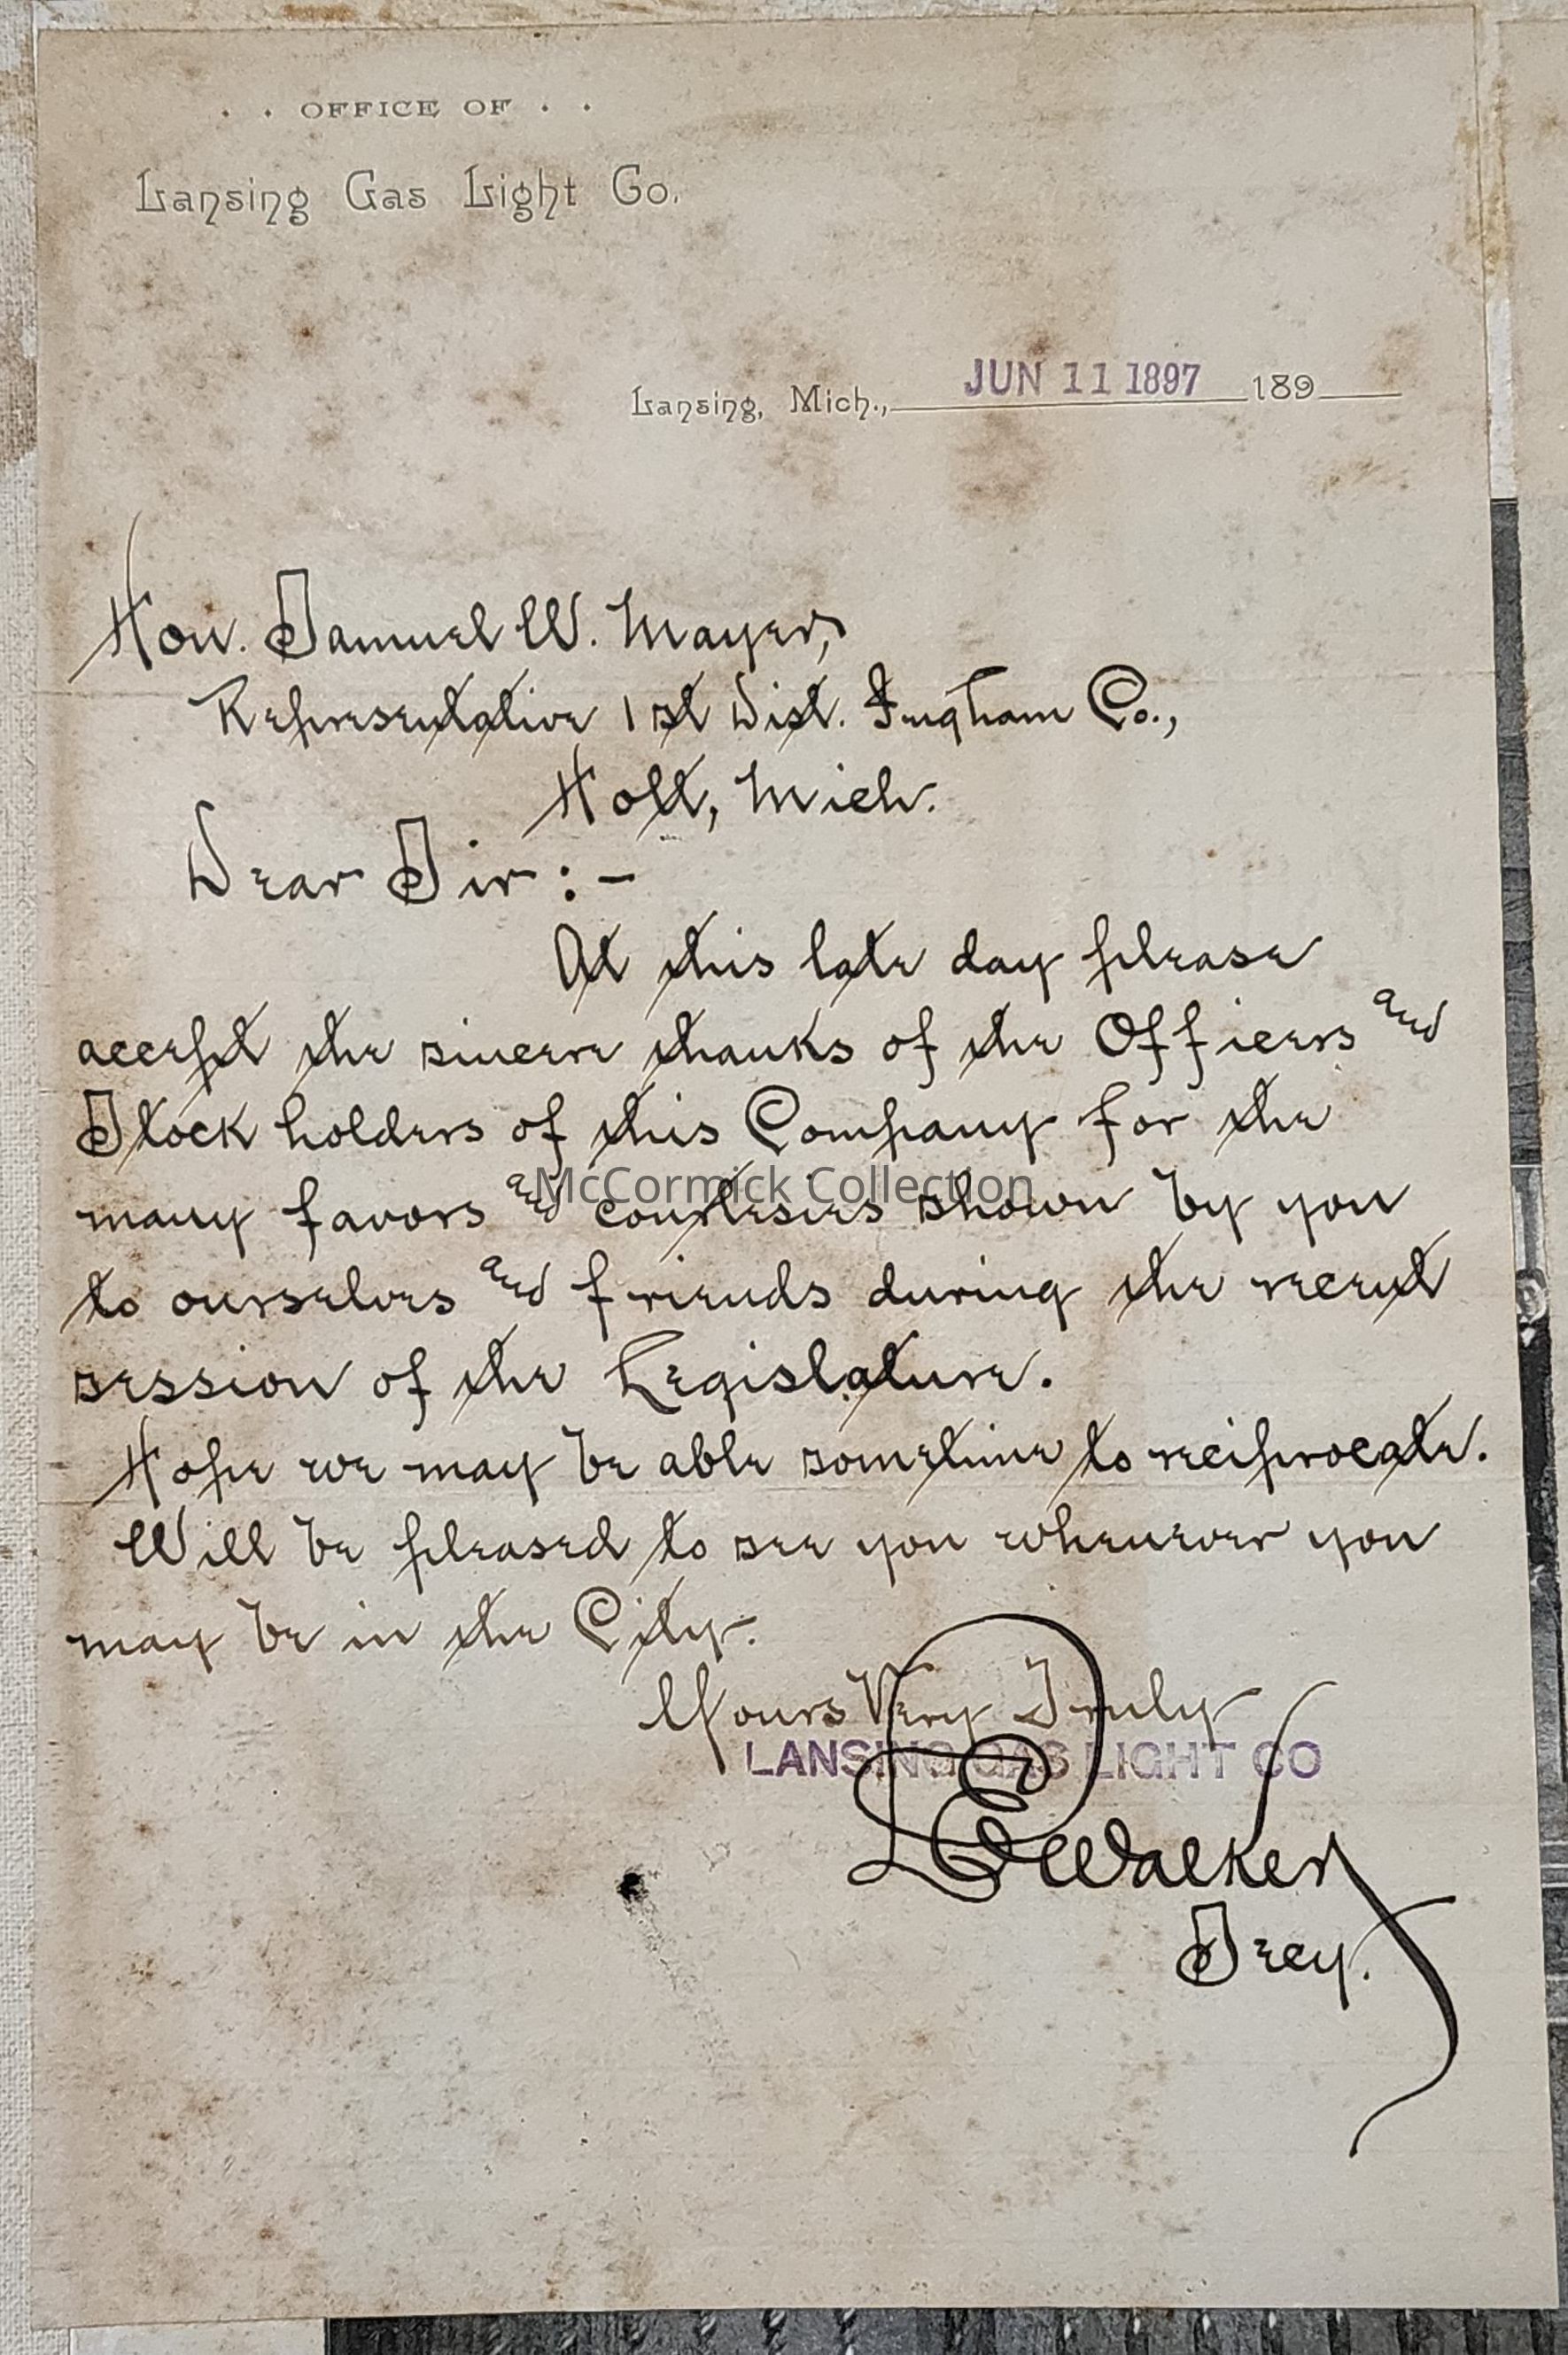 . . OFFICE OF . .
Lansing Gas Light Co.
Lansing, Mich., JUN 11 1897 189
Hon. Samuel W. Mayer,
Representative 1st Dist. Ingham Co.,
Holt, Mich.
Dear Sir :-
At this late day please
accept the sincere thanks of the Officers and
Stock holders of this Company for the
many favors and courtesies shown by you
McCormick Collection
to ourselves and friends during the recent
session of the Legislature.
Hope we may be able sometime to reciprocate.
Will be pleased to see you whenever you
may be in the City.
Yours Very Truly
LANSING GAS LIGHT CO
Walker
Secy.